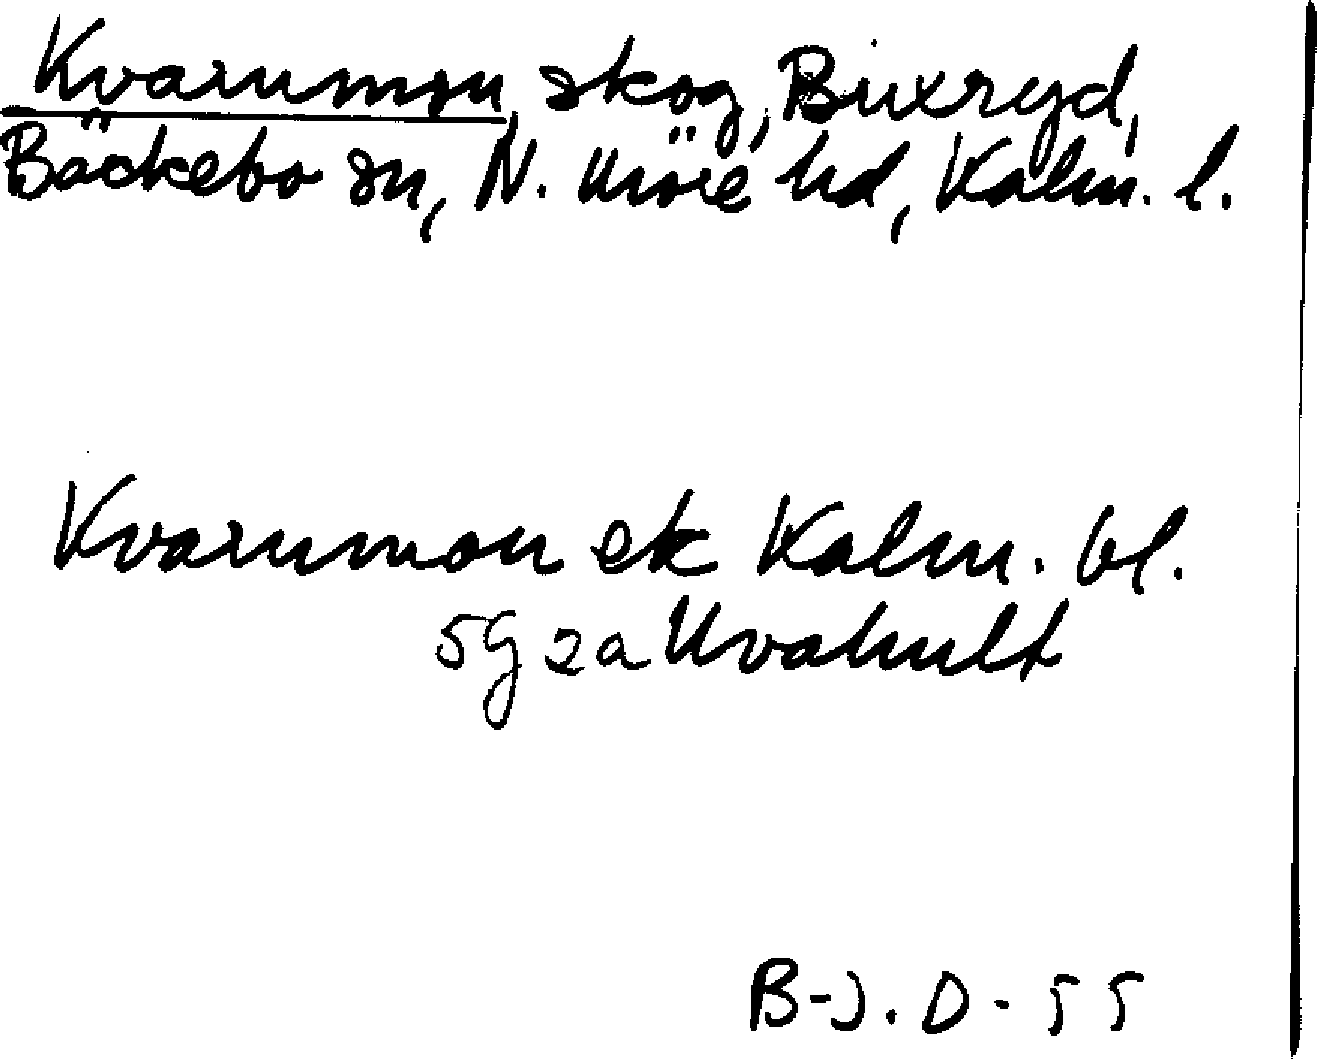 Kvarnmon, skog, Buxryd,
Bäckebo sn, N. Möre hd, Kalm. l.
Kvarnmon ek Kalm. bl.
5G 2a Kvahult
B-J. D - 55